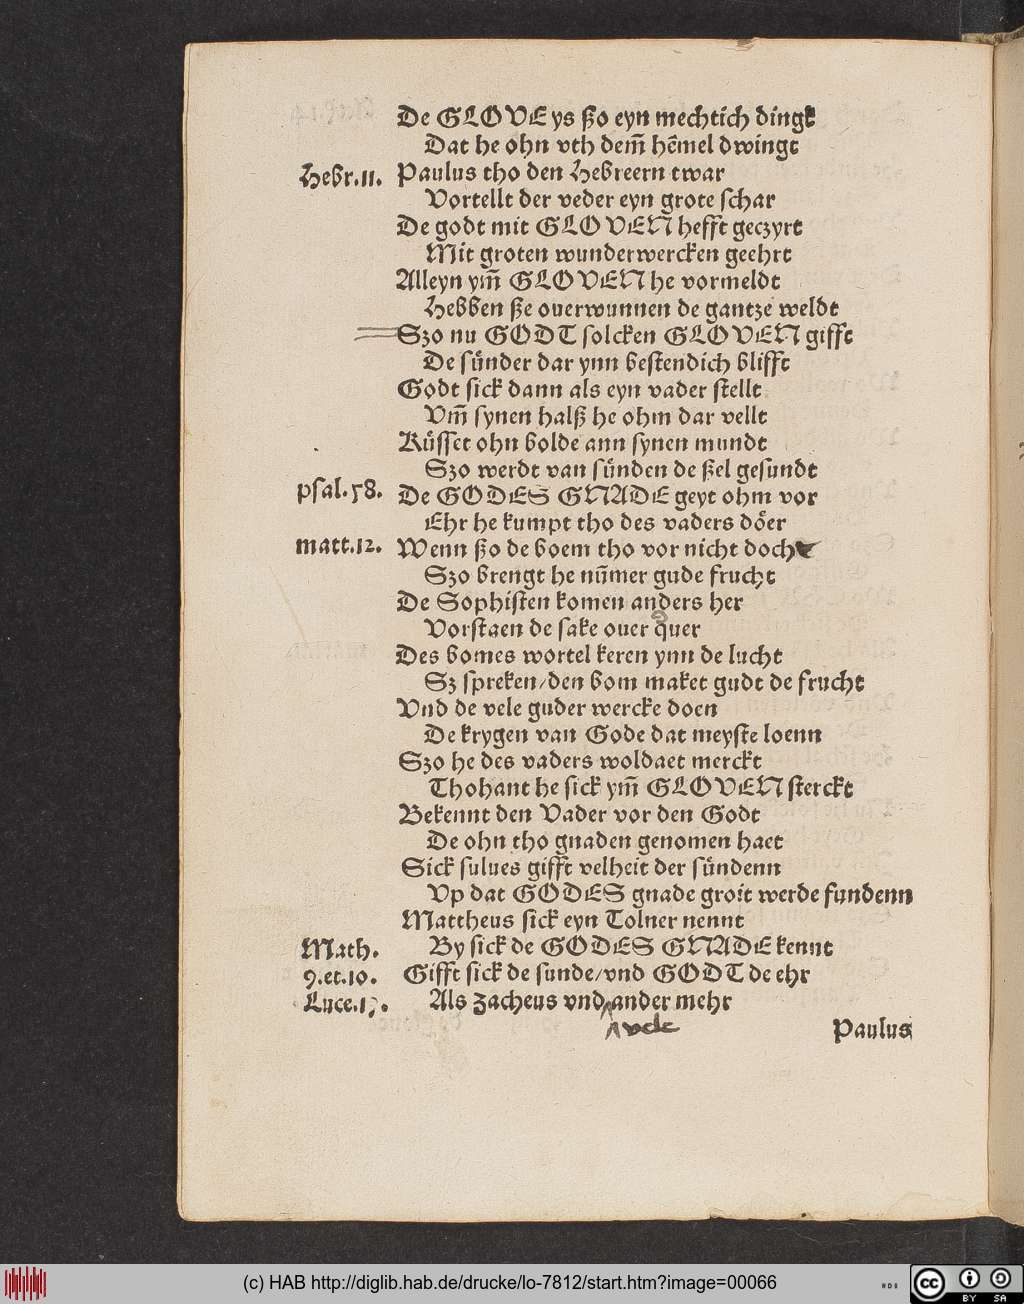 De GLOVE ys ßo eyn mechtich dingk
Dat he ohn vth dem̄ hēmel dwingt
Hebr.11. Paulus tho den Hebreern twar
Vortellt der veder eyn grote schar
De godt mit GLOVEN hefft geczyrt
Mit groten wunderwercken geehrt
Alleyn ym̄ GLOVEN he vormeldt
Hebben ße ouerwunnen de gantze weldt
Szo nu GODT solcken GLOVEN gifft
De sünder dar ynn bestendich blifft
Godt sick dann als eyn vader stellt
Vm̄ synen halß he ohm dar vellt
Küsset ohn bolde ann synen mundt
Szo werdt van sünden de ßel gesundt
psal.58. De GODES GNADE geyt ohm vor
Ehr he kumpt tho des vaders döer
matt.12. Wenn ßo de boem tho vor nicht doch
Szo brengt he nūmer gude frucht
De Sophisten komen anders her
Vorstaen de sake ouer quer
Des bomes wortel keren ynn de lucht
Sz spreken/den bom maket gudt de frucht
Vnd de vele guder wercke doen
De krygen van Gode dat meyste loenn
Szo he des vaders woldaet merckt
Thohant he sick ym̄ GLOVEN sterckt
Bekennt den Vader vor den Godt
De ohn tho gnaden genomen haet
Sick sulues gifft velheit der sündenn
Vp dat GODES gnade groit werde fundenn
Mattheus sick eyn Tolner nennt
Math. By sick de GODES GNADE kennt
9.et.10. Gifft sick de sunde/vnd GODT de ehr
Luce.19. Als Zacheus vnd ander mehr
vele
Paulus
(c) HAB http://diglib.hab.de/drucke/lo-7812/start.htm?image=00066
HAB
cc BY SA